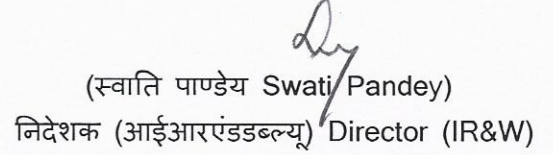 (स्वाति पाण्डेय Swati Pandey)
निदेशक (आईआरएंडडब्ल्यू) Director (IR&W)